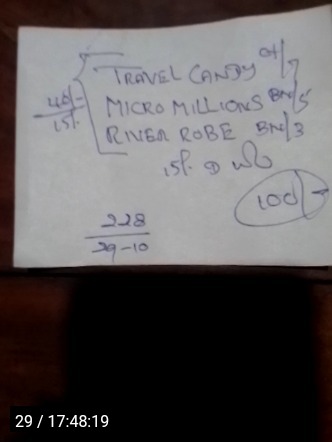 TRAVEL CANDY CH/7
40/-
15/.
MICRO MILLIONS BN/5
RIVER ROBE BN/3
15/.
100/-
228
29-10
29 / 17:48:19